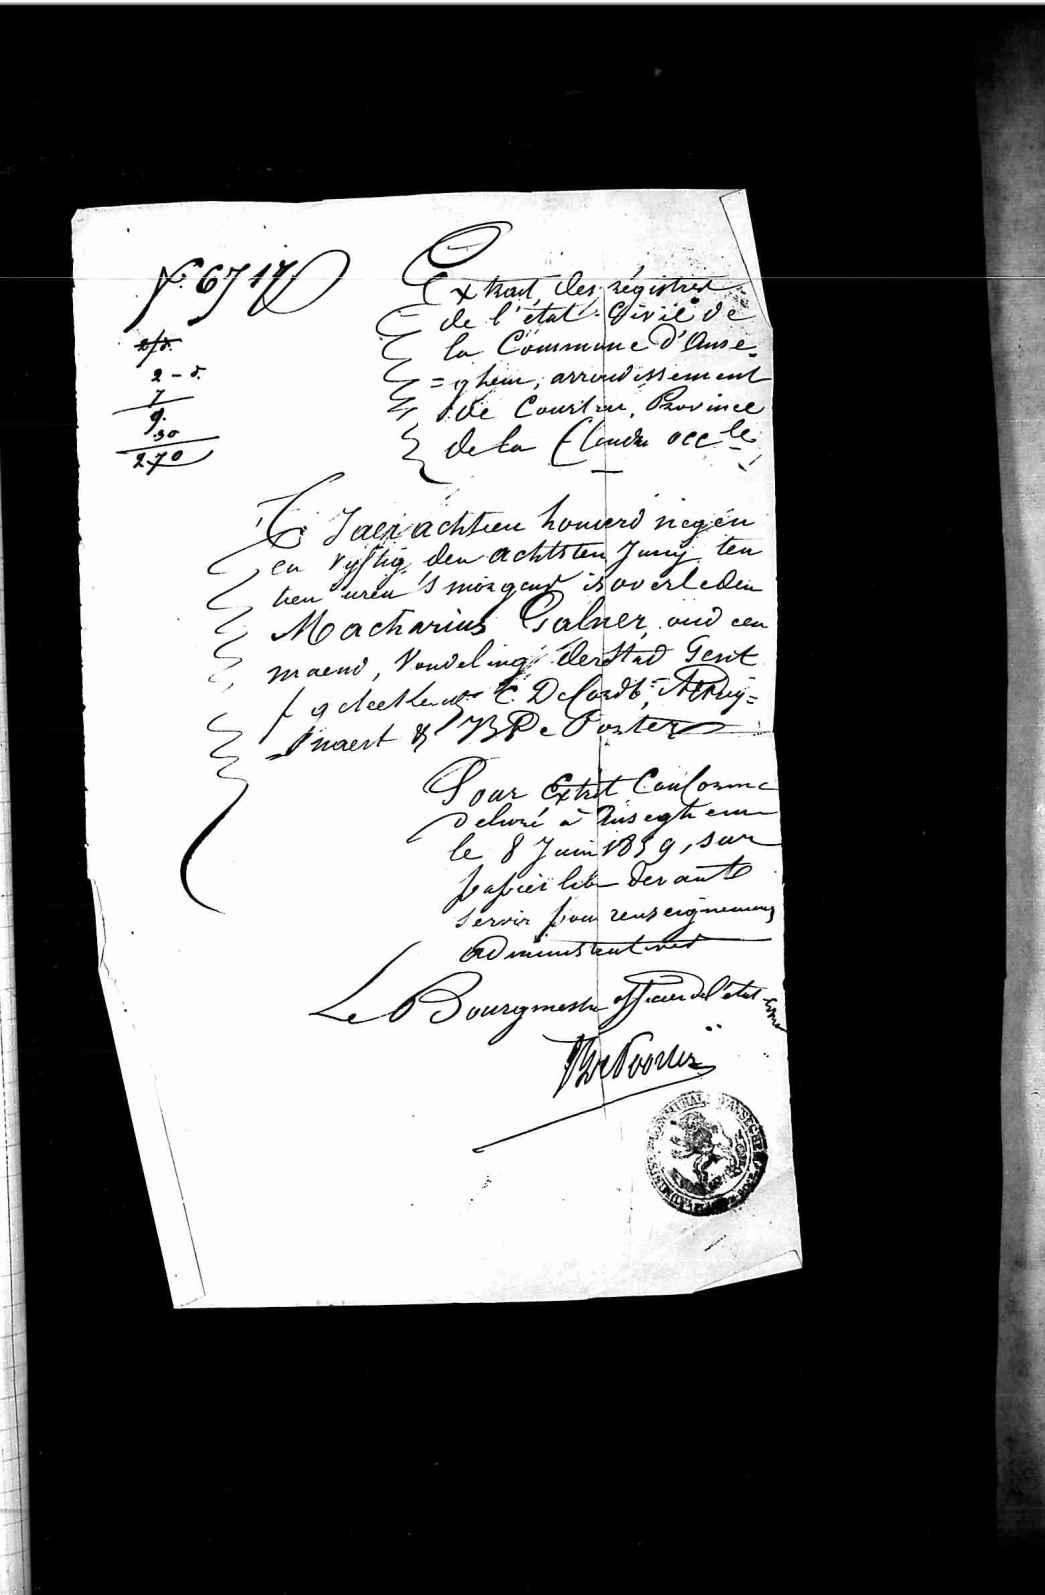 f° 6717
2/5.
2 – 5.
7
9.
30
270
Extrait des régistres
de l'état Civil de
la Commune d'Anse-
=ghem, arrondissement
de Courtrai, Province
de la Flandre occle
T' Jaer achtien honderd negen
en vyftig, den achtsten Juny, ten
tien uren 's morgens is overleden
Macharius Galner, oud een
maend, Vondeling der stad Gent
geteekend C. De
naert & B De Poorter
Pour Extrait Conforme
Delivré à Anseghem
le 8 Juin 1859, sur
papier libre devant
servir pour renseignements
administratives
Le Bourgmestre officier de l'état
B De Poorter